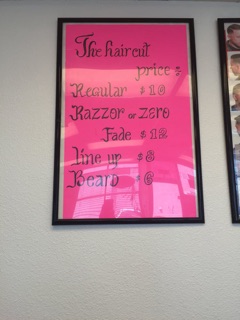 The haircut
price :
Regular $10
Razzor or zero
Fade $12
Line up $8
Beard $6